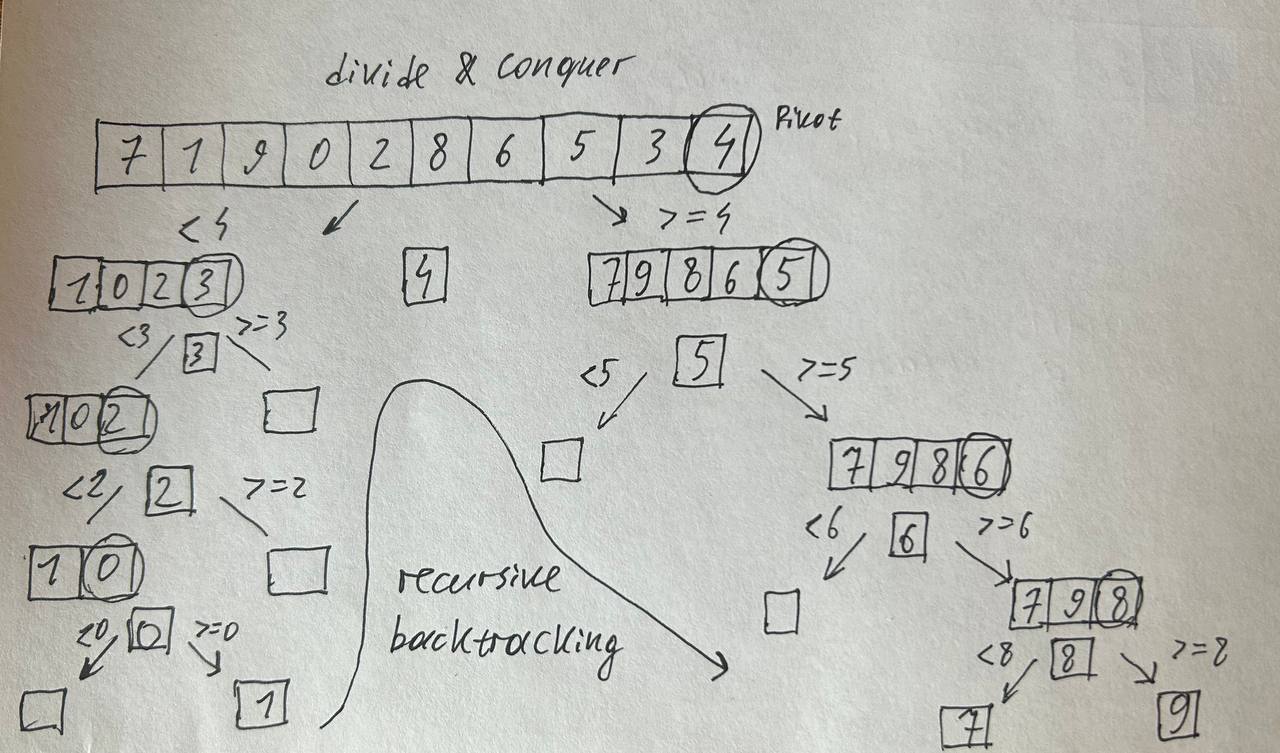 divide & conquer
7 1 9 0 2 8 6 5 3 4 Pivot
<4 >=4
1 0 2 3 4 7 9 8 6 5
<3 3 >=3 <5 5 >=5
1 0 2
7 9 8 6
<2 2 >=2 <6 6 >=6
1 0
recursive
backtracking
7 9 8
<0 0 >=0 <8 8 >=8
1 7 9